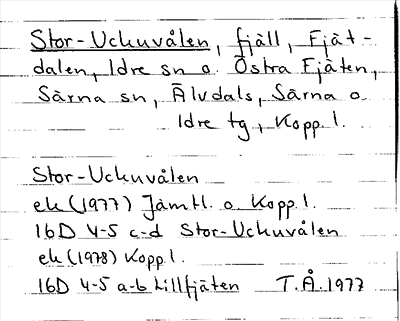 Stor-Uckuvålen, fjäll, Fjät-
dalen, Idre sn o. Östra Fjäten,
Särna sn, Älvdals, Särna o.
Idre tg, Kopp. l.
Stor-Uckuvålen
ek (1977) Jämtl. o. Kopp. l.
16D 4-5 c-d Stor-Uckuvålen
ek (1978) Kopp. l.
16D 4-5 a-b Lillfjäten T.Å. 1977